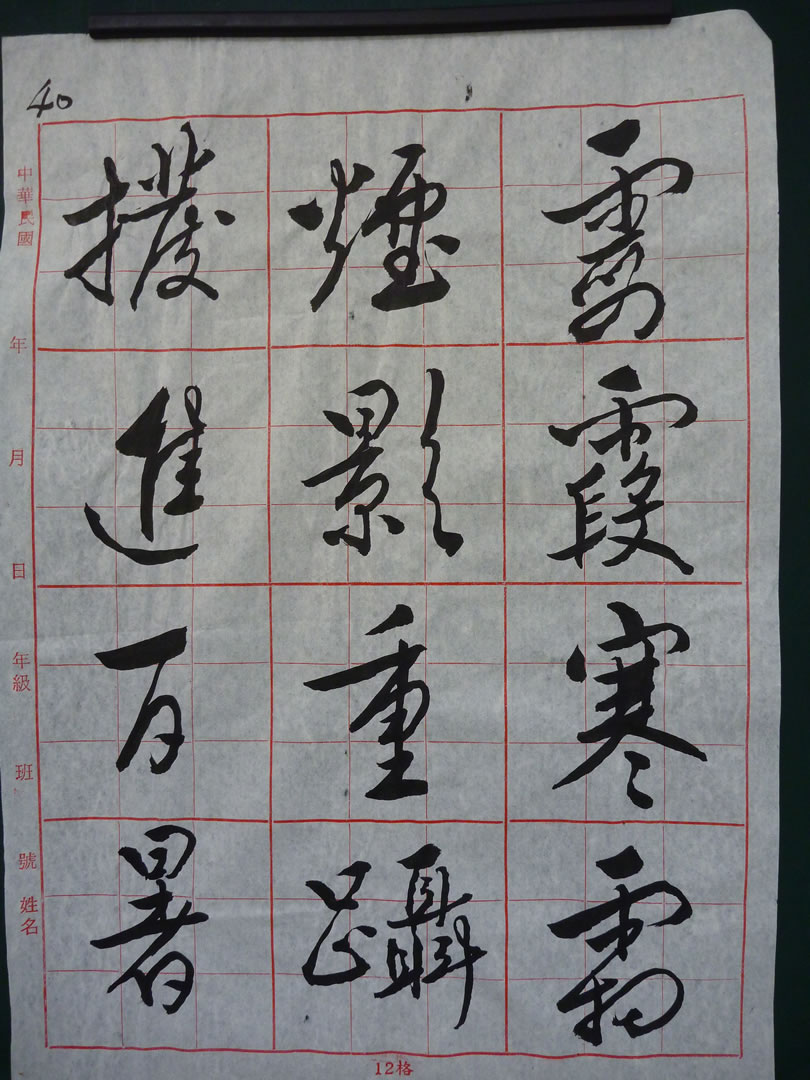 40
撥煙霞
進影霞
百重寒
暑躡霜
中華民國　年　月　日　年級　班　號　姓名
12格